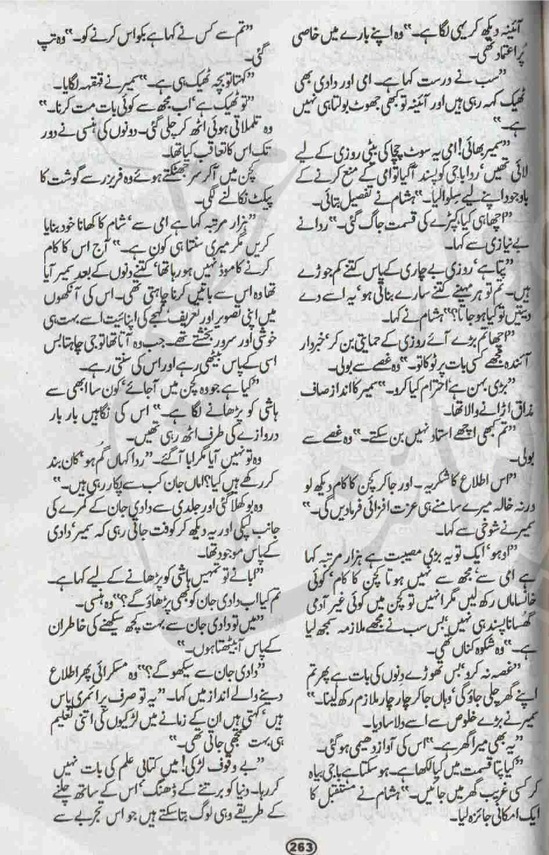 آئینہ دیکھ کر یہی لگا ہے۔“ وہ اپنے بارے میں خاصی
پُراعتماد تھی۔
”سب نے درست کہا ہے۔ امی اور دادی بھی
ٹھیک کہہ رہی ہیں اور آئینہ تو کبھی جھوٹ بولتا ہی نہیں
ہے۔“
”سمیر بھائی! امی یہ سوٹ چچا کی بیٹی روزی کے لیے
لائی تھیں‘ ردا باجی کو پسند آگیا تو امی کے منع کرنے کے
باوجود اپنے لیے سلوا لیا۔“ ہشام نے تفصیل بتائی۔
”اچھا ہی کیا کپڑے کی قسمت جاگ گئی۔“ ردا نے
بے نیازی سے کہا۔
”پتا ہے‘ روزی بے چاری کے پاس کتنے کم جوڑے
ہیں۔ تم تو ہر مہینے کتنے سارے بناتی ہو‘ یہ اسے دے
دیتیں تو کیا ہو جاتا؟“ ہشام نے کہا۔
”اچھا تم بڑے آئے روزی کے حمایتی بن کر‘ خبردار
آئندہ مجھے کسی بات پر ٹوکا تو۔“ وہ غصے سے بولی۔
”بڑی بہن ہے احترام کیا کرو۔“ سمیر کا انداز صاف
مذاق اڑانے والا تھا۔
”تم کبھی اچھے استاد نہیں بن سکتے۔“ وہ غصے سے
بولی۔
”اس اطلاع کا شکریہ۔ اور جا کر کچن کا کام دیکھ لو
ورنہ خالہ میرے سامنے ہی عزت افزائی فرما دیں گی۔“
سمیر نے شوخی سے کہا۔
”اوہو‘ ایک تو یہ بڑی مصیبت ہے ہزار مرتبہ کہا
ہے امی سے‘ مجھ سے نہیں ہوتا کچن کا کام‘ کوئی
خانساماں رکھ لیں مگر انہیں تو کچن میں کوئی غیر آدمی
گھسانا پسند ہی نہیں‘ بس سب نے مجھے ملازمہ سمجھ لیا
ہے۔“ وہ شکوہ کناں تھی۔
”غصہ نہ کرو‘ بس تھوڑے دنوں کی بات ہے پھر تم
اپنے گھر چلی جاؤ گی‘ وہاں جا کر چار چار ملازم رکھ لینا۔“
سمیر نے بڑے خلوص سے اسے دلاسا دیا۔
”یہ بھی میرا گھر ہے۔“ اس کی آواز دھیمی ہو گئی۔
”کیا پتا قسمت میں کیا لکھا ہے۔ ہو سکتا ہے باجی بیاہ
کر کسی غریب گھر میں جائیں۔“ ہشام نے مستقبل کا
ایک امکانی جائزہ لیا۔
”تم سے کس نے کہا ہے بکواس کرنے کو۔“ وہ تپ
گئی۔
”کہتا تو بچہ ٹھیک ہی ہے۔“ سمیر نے قہقہہ لگایا۔
”تو ٹھیک ہے‘ اب مجھ سے کوئی بات مت کرنا۔“
وہ تلملاتی ہوئی اٹھ کر چلی گئی۔ دونوں کی ہنسی نے دور
تک اس کا تعاقب کیا تھا۔
کچن میں آکر سر جھٹکتے ہوئے وہ فریزر سے گوشت کا
پیکٹ نکالنے لگی۔
”ہزار مرتبہ کہا ہے امی سے‘ شام کا کھانا خود بنایا
کریں مگر میری سنتا ہی کون ہے۔“ آج اس کا کام
کرنے کا موڈ نہیں ہو رہا تھا‘ کتنے دنوں کے بعد سمیر آیا
تھا وہ اس سے باتیں کرنا چاہتی تھی۔ اس کی آنکھوں
میں اپنی تصویر اور تعریف‘ لہجے کی اپنائیت اسے بہت ہی
خوشی اور سرور بخشتے تھے۔ جب وہ آتا تھا تو جی چاہتا بس
اسی کے پاس بیٹھی رہے اور اس کی سنتی رہے۔
”کیا ہے جو وہ کچن میں آجائے‘ کون سا ابھی سے
ہاشی کو پڑھانے لگا ہے۔“ اس کی نگاہیں بار بار
دروازے کی طرف اٹھ رہی تھیں۔
وہ تو نہیں آیا مگر ابا آگئے۔ ”ردا کہاں گم ہو‘ کان بند
کر رکھے ہیں کیا؟ اماں جان کب سے پکار رہی ہیں۔“
وہ بوکھلا گئی اور جلدی سے دادی جان کے کمرے کی
جانب لپکی اور یہ دیکھ کر کوفت جاتی رہی کہ سمیر‘ دادی
کے پاس موجود تھا۔
”ابا نے تو تمہیں ہاشی کو پڑھانے کے لیے کہا ہے۔
تم کیا اب دادی جان کو بھی پڑھاؤ گے؟“ وہ ہنسی۔
”میں تو دادی جان سے بہت کچھ سیکھنے کی خاطر ان
کے پاس آ بیٹھتا ہوں۔“
”دادی جان سے سیکھو گے؟“ وہ مسکرائی پھر اطلاع
دینے والے انداز میں کہا۔ ”یہ تو صرف پرائمری پاس
ہیں‘ کہتی ہیں ان کے زمانے میں لڑکیوں کی اتنی تعلیم
ہی بہت سمجھی جاتی تھی۔“
”بے وقوف لڑکی! میں کتابی علم کی بات نہیں
کر رہا۔ دنیا کو برتنے کے ڈھنگ‘ اس کے ساتھ چلنے
کے طریقے وہی لوگ بتا سکتے ہیں جو اس تجربے سے
263